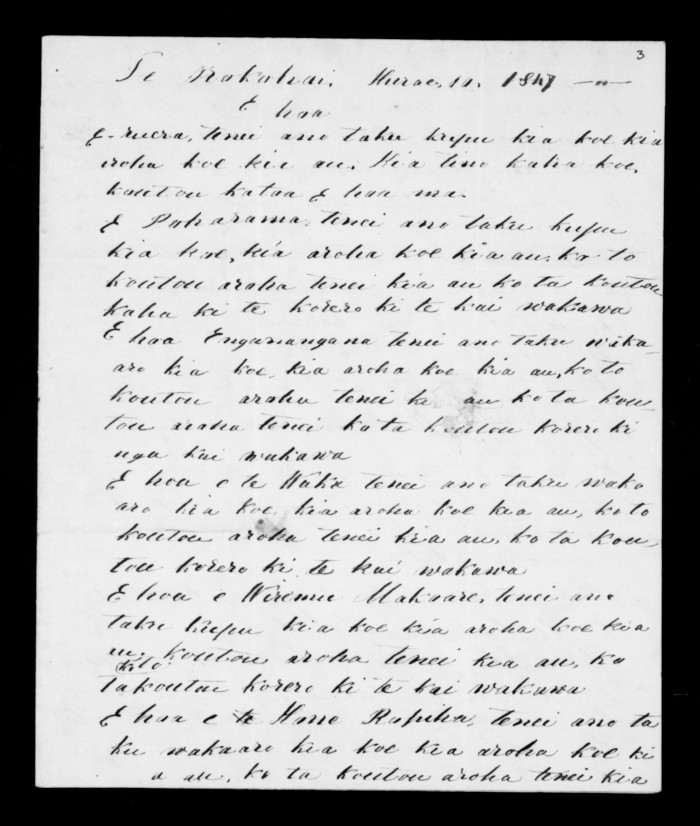 3
Te Makahai. Hurae. 10. 1847
E hoa
E ruera, tenei ano taku kupu kia koe kia
aroha koe kia au. Kia tino kaha koe,
koutou kataa E hoa ma.
E Paharama, tenei ano taku kupu
kia koe, kia aroha koe kia au, ko to
koutou aroha tenei kia au ko ta koutou
kaha ki te korero ki te kai wakawa
E hoa Enganangana tenei ano taku waka
aro kia koe, kia aroha koe kia au, ko to
koutou aroha tenei ki au ko ta kou
tou aroha tenei kota koutou korero ki
nga kai wakawa
E hoa e te Waka tenei ano taku waka
aro kia koe, kia aroha koe kia au, ko to
koutou aroha tenei kia au, ko ta kou
tou korero ki te kai wakawa
E hoa e Wiremu Makaare, tenei ano
taku kupu kia koe kia aroha koe kia
au. ko to koutou aroha tenei kia au, ko
takoutou korero ki te kai wakawa
E hoa e te Hame Rapiha, tenei ano ta
ku wakaaro kia koe kia aroha koe ki
a au, ko ta koutou aroha tenei kia